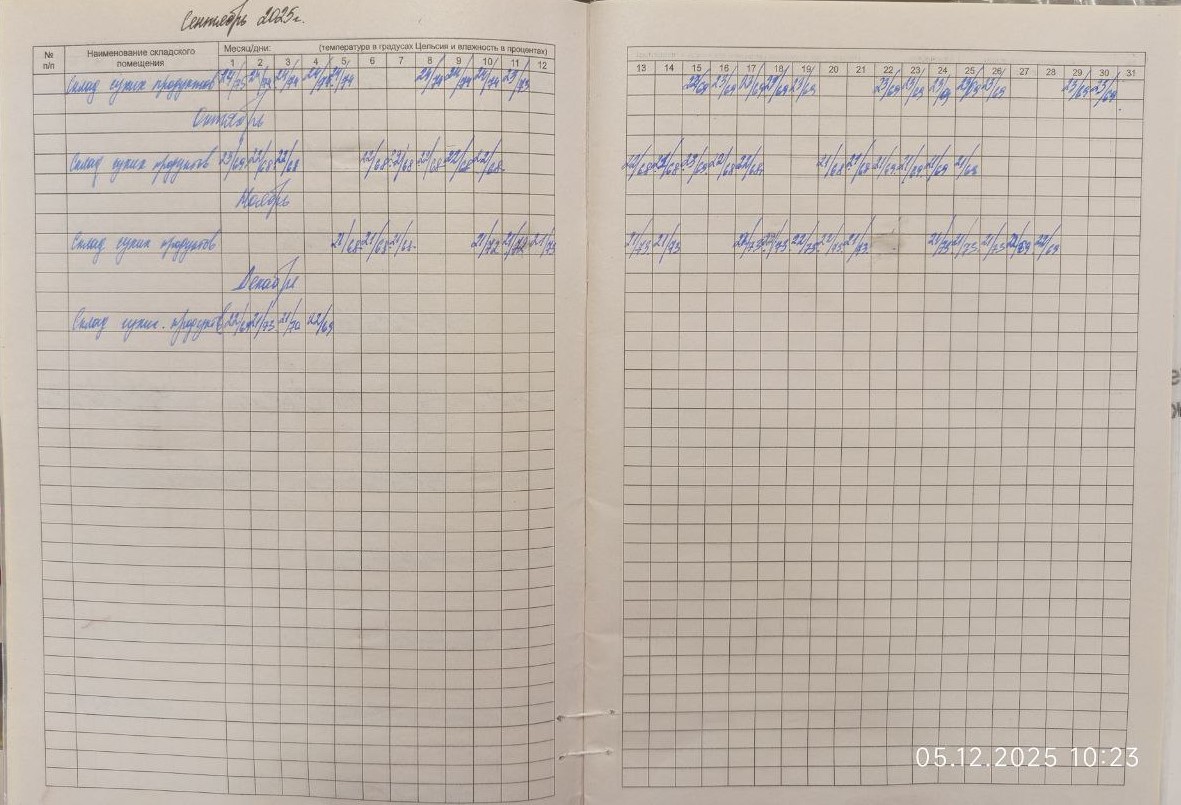 Сентябрь 2025г.
№ п/п
Наименование складского помещения
Месяц/дни: (температура в градусах Цельсия и влажность в процентах)
1 2 3 4 5 6 7 8 9 10 11 12 13 14 15 16 17 18 19 20 21 22 23 24 25 26 27 28 29 30 31
Склад сухих продуктов 24/75 24/74 24/74 24/74 24/74 24/74 24/74 23/73 23/69 23/69 23/69 23/69 23/69 23/69 23/69 23/69 23/69 23/69
Октябрь
Склад сухих продуктов 23/69 22/68 22/68 22/68 22/68 22/68 22/68 22/68 22/68 22/68 22/68 21/68 21/68 21/69 21/69 21/69
Ноябрь
Склад сухих продуктов 21/68 21/68 21/68 21/72 21/73 21/73 21/73 22/73 21/73 21/73 21/73 21/73 22/69 22/69
Декабрь
Склад сухих. продуктов 22/69 21/73 21/70 22/69
05.12.2025 10:23